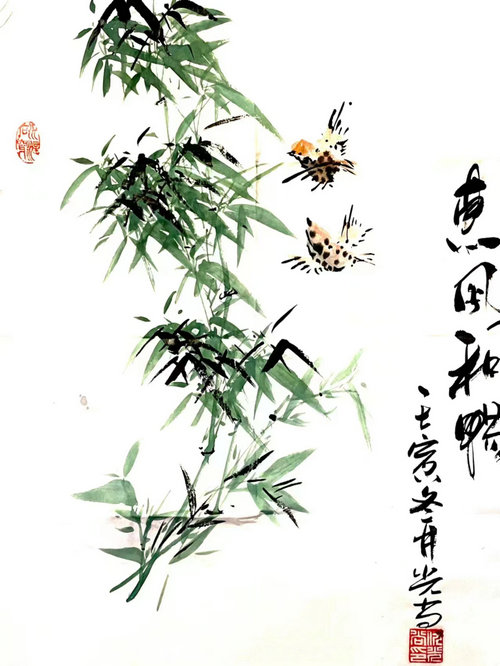 惠风和暢
壬寅冬月光尚